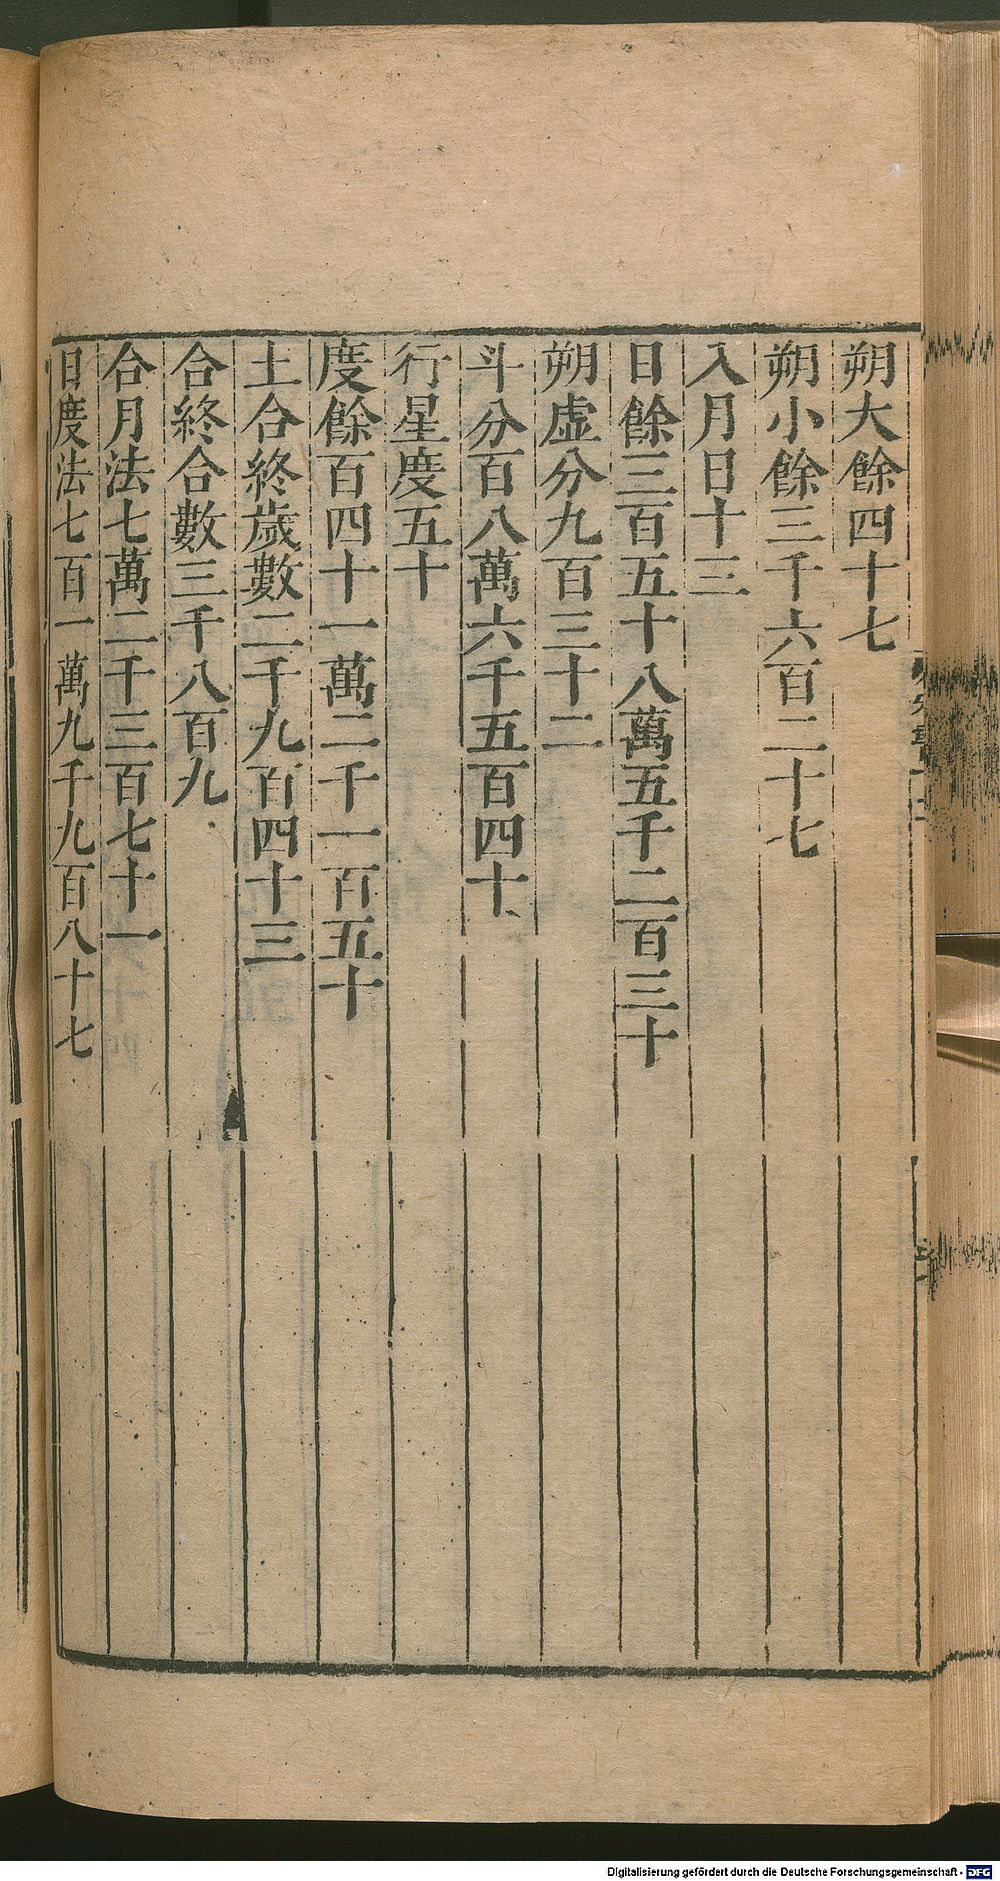 朔大餘四十七
朔小餘三千六百二十七
入月日十三
日餘三百五十八萬五千二百三十
朔虛分九百三十二
斗分百八萬六千五百四十
行星度五十
度餘百四十一萬二千一百五十
土合終歲數二千九百四十三
合終合數三千八百九
合月法七萬二千三百七十一
日度法七百一萬九千九百八十七
Digitalisierung gefördert durch die Deutsche Forschungsgemeinschaft - DFG